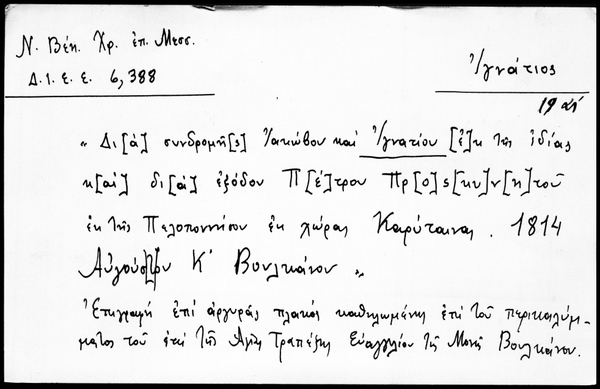 Ν. Βέη. Χρ. ἐπ. Μεσσ.
Δ.Ι.Ε.Ε. 6, 388
Ἰγνάτιος
19 αἰ
« Δι[ὰ] συνδρομῆ[ς] Ἰακώβου καὶ Ἰγνατίου [ἐ]κ τῆς ἰδίας
κ[αὶ] δι[ὰ] ἐξόδου Π[έ]τρου Πρ[ο]ς[κυ]ν[η]τοῦ
ἐκ τῆς Πελοποννήσου ἐκ χώρας Καρύταινας. 1814
Αὐγούστου Κ' Βουλκάνου »
Ἐπιγραφὴ ἐπὶ ἀργυρᾶς πλακὸς καθηλωμένης ἐπὶ τοῦ περικαλύμ-
ματος τοῦ ἐπὶ τῆς Ἁγίας Τραπέζης Εὐαγγελίου τῆς Μονῆς Βουλκάνου.